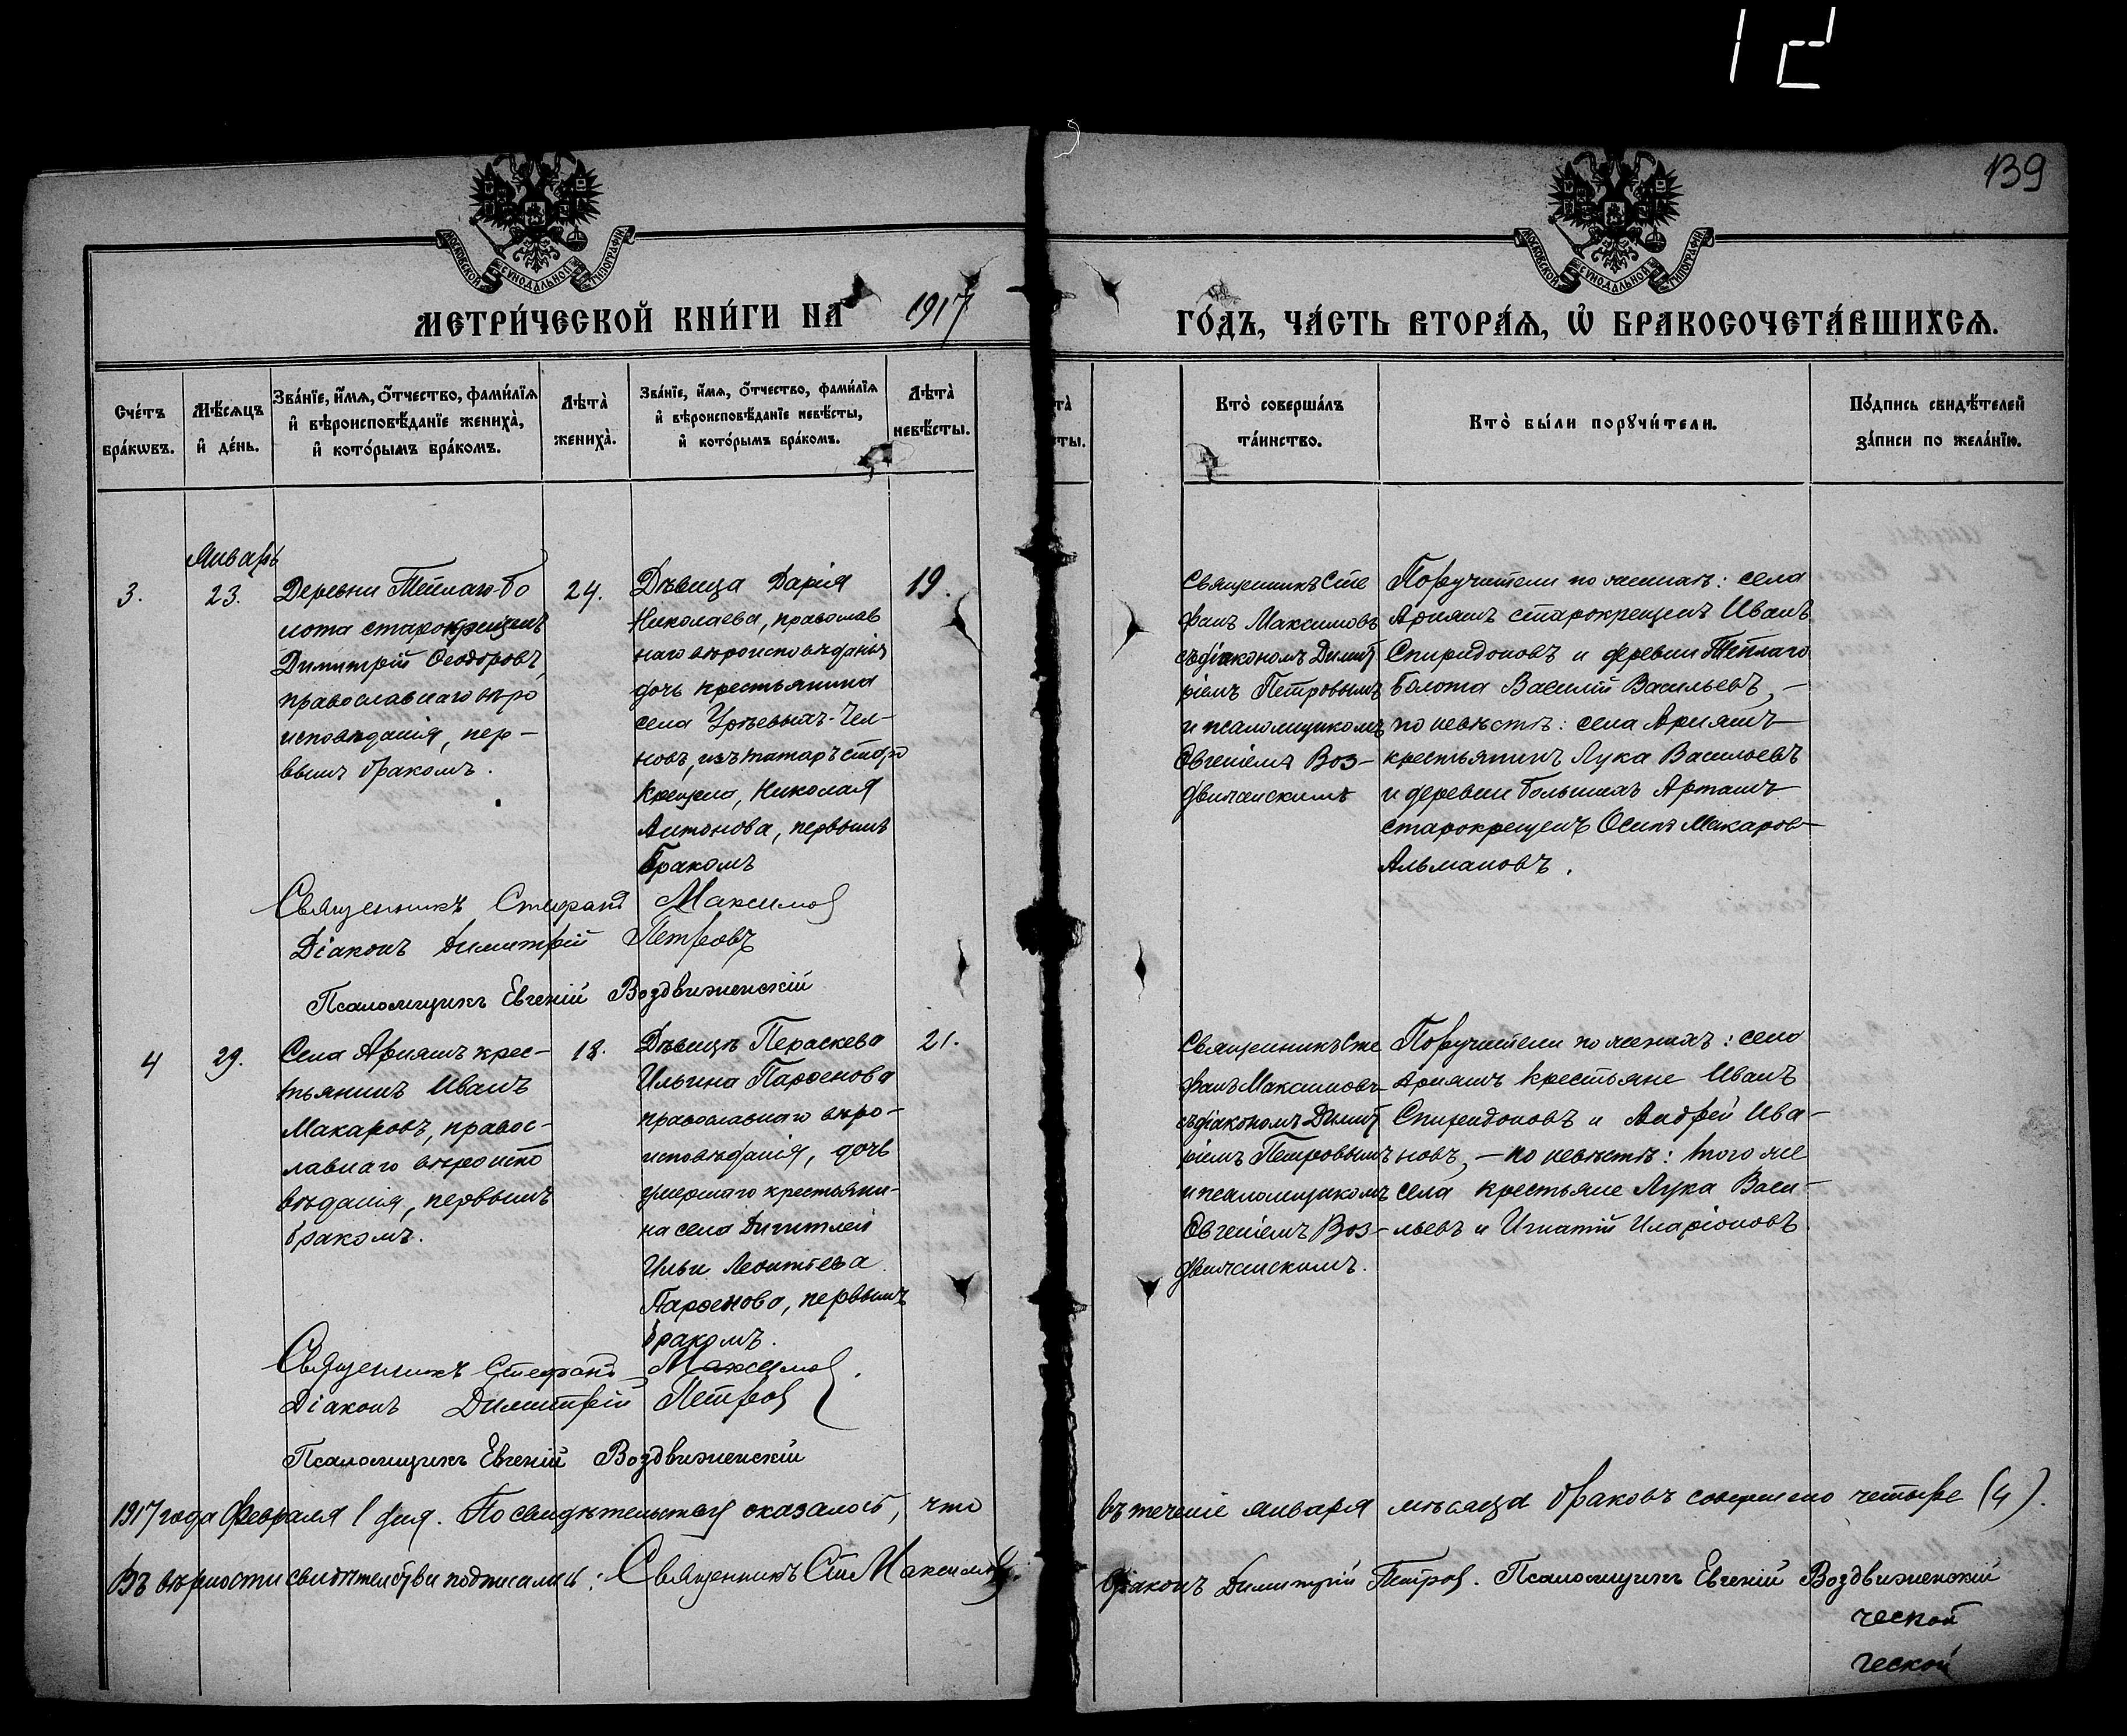 12
139
МОСКОВСКОЙ СѴНОДАЛЬНОЙ ТИПОГРАФІИ
МОСКОВСКОЙ СѴНОДАЛЬНОЙ ТИПОГРАФІИ
МЕТРИ́ЧЕСКОЙ КНИ́ГИ НА 1917
ГО́ДЪ, ЧА́СТЬ ВТОРА́Ѧ, Ѽ БРАКОСОЧЕТА́ВШИХСѦ.
Сче́тъ
бра́кѡвъ.
Мѣ́сѧцъ
и҆ де́нь.
Зва́нїе, и҆́мѧ, ѻ҆́тчество, фами́лїѧ
и҆ вѣроисповѣ́данїе жениха̀,
и҆ кото́рымъ бра́комъ.
Лѣта̀
жениха̀.
Зва́нїе, и҆́мѧ, ѻ҆́тчество, фами́лїѧ
и҆ вѣроисповѣ́данїе невѣ́сты,
и҆ кото́рымъ бра́комъ.
Лѣта̀
невѣ́сты.
та̀
ты.
Кто̀ соверша́лъ
та́инство.
Кто̀ бы́ли порꙋчи́тели.
По́дпись свидѣ́телей
за́писи по жела́нїю.
3.
Январь
23.
Деревни Теплаго-бо
лота старокрещенъ
Димитрій Ѳеодоровъ,
православнаго вѣро
исповѣданія, пер-
вымъ бракомъ.
24.
Дѣвица Дарія
Николаева, православ
наго вѣроисповѣданія
дочь крестьянина
села Урѣевыхъ-Чел-
новъ, изъ татаръ старо
крещена, Николая
Антонова, первымъ
бракомъ
19.
Священникъ Сте
фанъ Максимовъ
съ діакономъ Димит
ріемъ Петровымъ
и псаломщикомъ
Евгеніемъ Воз-
движенскимъ
Поручители по женихѣ: села
Аряшъ старокрещенъ Иванъ
Спиридоновъ и деревни Теплаго
Болота Василій Васильевъ, -
по невѣстѣ: села Аряшъ
крестьянинъ Лука Васильевъ
и деревни Большихъ Арташъ
старокрещенъ Осипъ Макаров
Альмановъ.
Священникъ Стефанъ Максимов
Діаконъ Димитрій Петровъ
Псаломщикъ Евгеній Воздвиженскій
4
29.
Села Аряшъ крес-
тьянинъ Иванъ
Макаровъ, правос-
лавнаго вѣроиспо
вѣданія, первымъ
бракомъ.
18.
Дѣвица Пераскева
Ильина Парѳенова
православнаго вѣро-
исповѣданія, дочь
умершаго крестьяни-
на села Дигитлей
Ильи Леонтьева
Парѳенова, первымъ
бракомъ.
21.
Священникъ Сте
фанъ Максимовъ
съ діакономъ Димит
ріемъ Петровымъ
и псаломщикомъ
Евгеніемъ Воз-
движенскимъ.
Поручители по женихѣ: села
Аряшъ крестьяне Иванъ
Спиридоновъ и Андрей Ива-
новъ, - по невѣстѣ: того же
села крестьяне Лука Васи-
льевъ и Игнатій Иларіоновъ.
Священникъ Стефанъ Максимов.
Діаконъ Димитрій Петров
Псаломщикъ Евгеній Воздвиженскій
1917 года Февраля 1 дня. По свидѣтельству оказалось, что въ теченіе января мѣсяца браковъ совершено четыре (4).
Въ вѣрности свидѣтельства подписались: Священникъ Сте. Максимов. Діаконъ Димитрій Петров. Псаломщикъ Евгеній Воздвиженскій
ческой
ческой